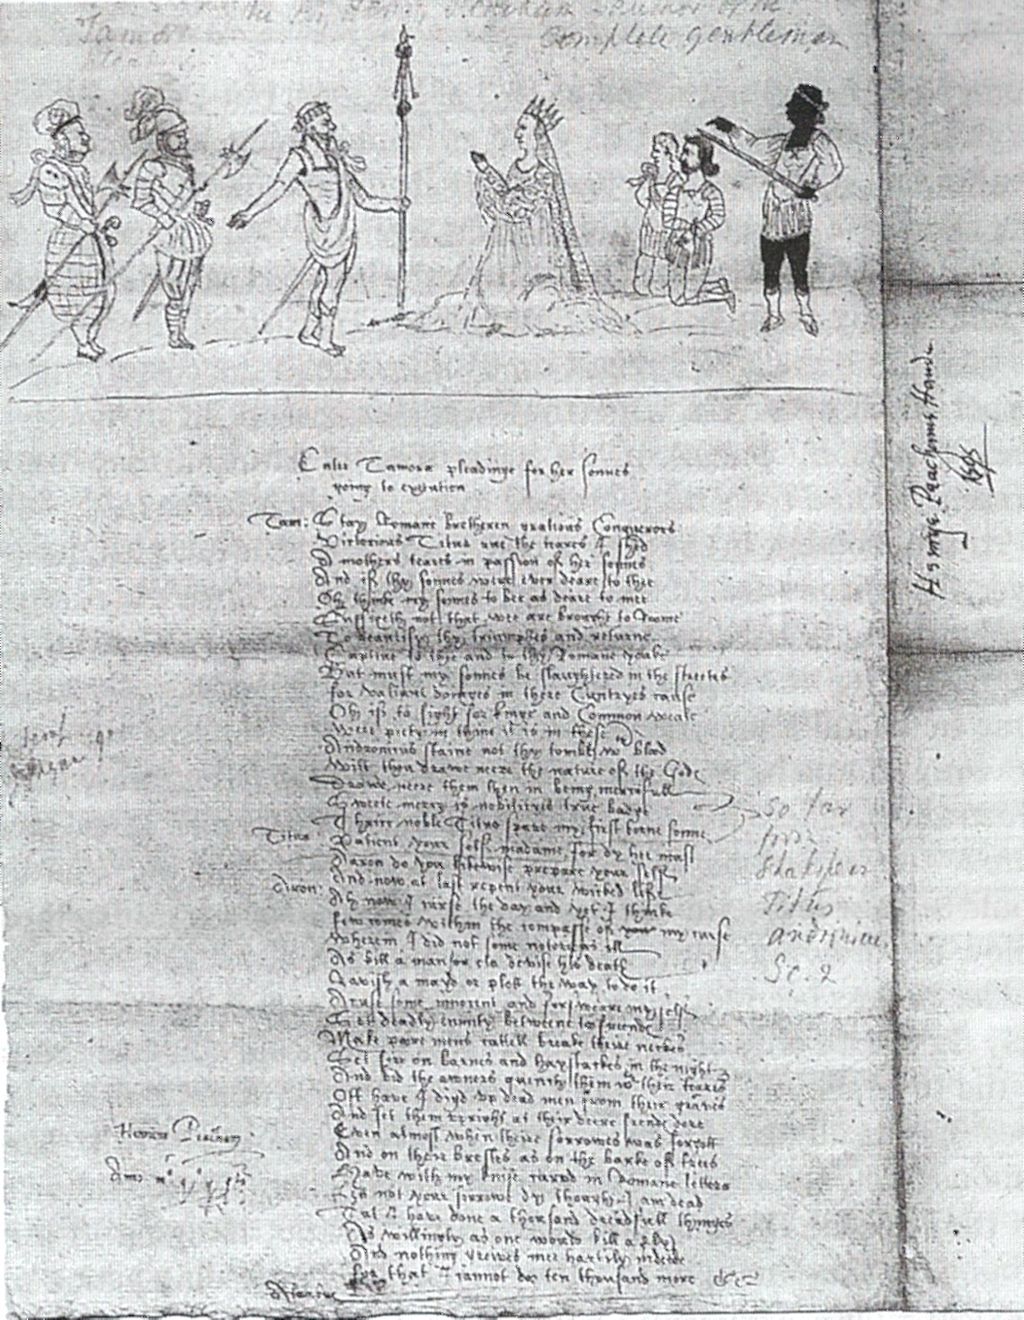 the by Henry
complete gentleman
Tamor
Enter Tamora pleadinge for her sonnes
going to execution
Tam: Stay Romane bretheren gratious Conquerors
Victorious Titus rue the teares I shed
A mothers teares in passion of her sonnes
And if thy sonnes were ever deare to thee
Oh thinke my sonnes to bee as deare to mee
Suffizeth not that wee are brought to Roome
To beautify thy triumphes and returne
Captiue to thee and to thy Romane yoake
But must my sonnes be slaughtered in the streetes
for valiant doynges in there Cuntryes cause
Oh if to fight for kinge and Common weale
Were piety in thine it is in these
Andronicus staine not thy tombe wth blood
Wilt thou drawe neere the nature of the Gods
Drawe neere them then in being mercifull
Sweete mercy is nobilityes true badge
Thrice noble Titus spare my first borne sonne
Titus: Patient your self madame for dy hee must
Aaron do you likewise prepare your self
And now at last repent your wicked life
Aron: Ah now I curse the day and yet I thinke
few comes within the compasse of my curse
Wherein I did not some notorious ill
As kill a man or els devise his death
Ravish a mayd or plott the way to do it
Acuse some innocent and forsweare myself
Set deadly enmity betweene too freendes
Make poore mens cattell breake theire neckes
Set fire on barnes and haystackes in the night
And bid the owners quench them wth their teares
Oft have I digd vp dead men from their graves
And set them vpright at their deere frendes dore
Even almost when theire sorrowes was forgott
And on their brestes as on the barke of trees
Have with my knife carvd in Romane letters
Lett not your sorrowe dy though I am dead
Tut I have done a thousand dreadfull thinges
As willingly as one would kill a fly
And nothing greives mee hartily indeede
for that I cannot doo ten thousand more &c
so far
from
Shakspear
Titus
Andronicus
Sc. 2
Henrye Peachams Hande
1595
Henricus Peacham
Anno mo qo qqto